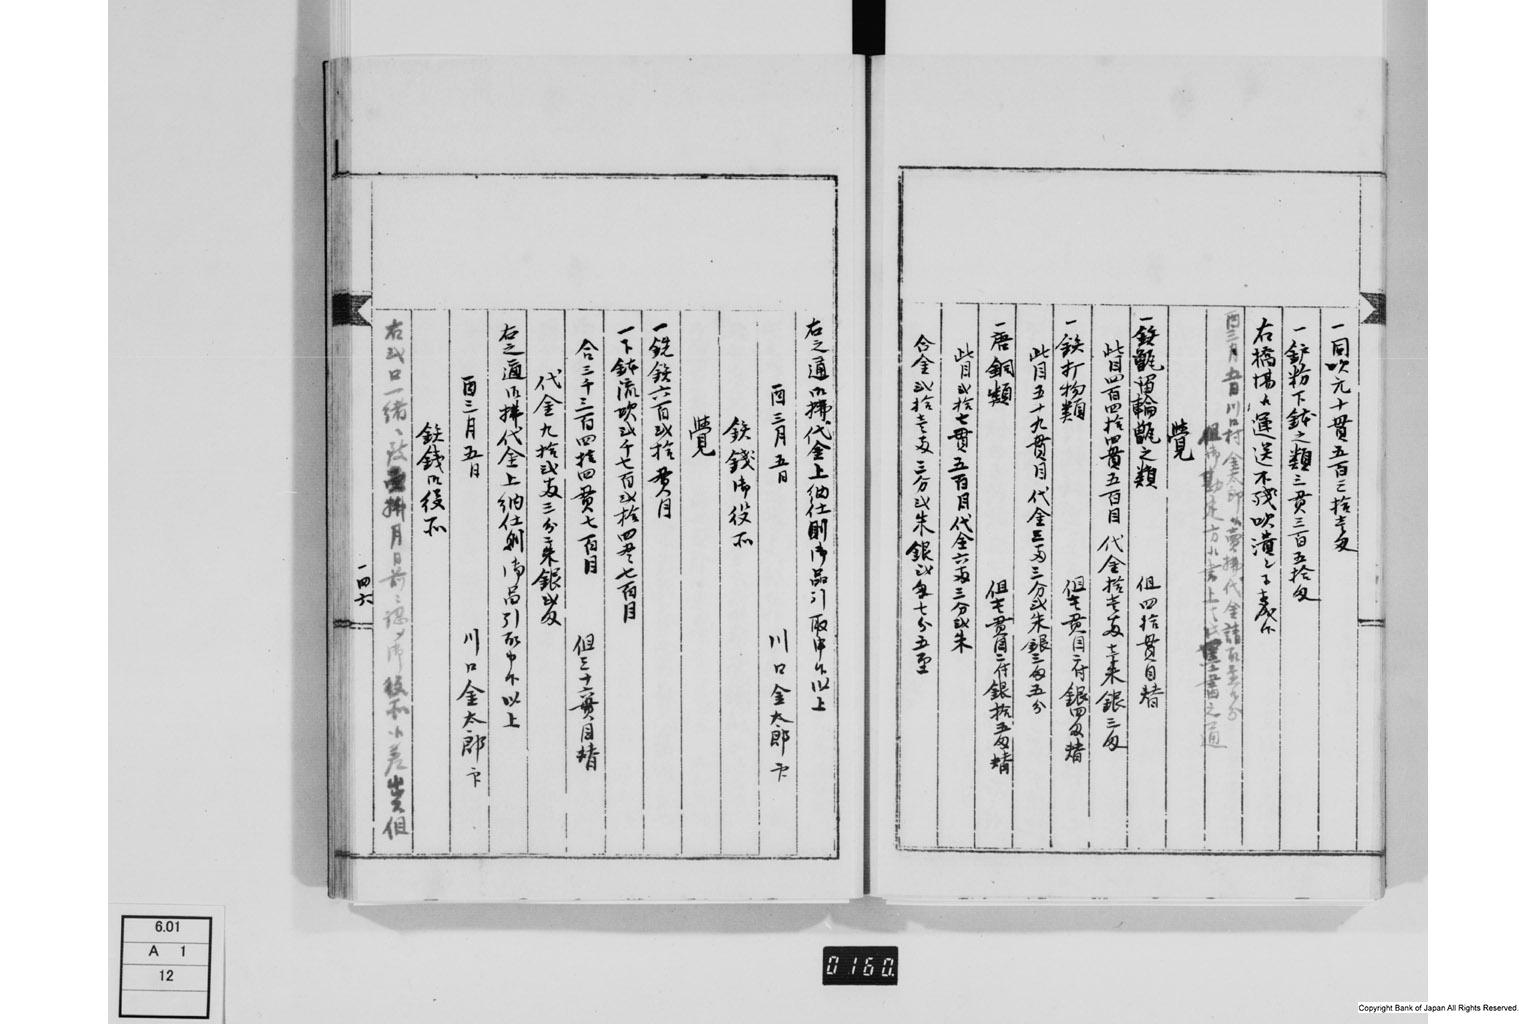 一同吹元十貫五百三拾壱匁
一鈩粉下鉄之類三貫三百五拾匁
右橋場ゟ運送不残吹潰
酉三月五日川口村金太郎
覚
一銑甑留輪甑之類 但四拾貫目替
此目四百四拾四貫五百目 代金拾壱両壱朱銀三匁
一鉄打物類 但壱貫目ニ付銀四匁替
此目五十九貫目 代金三両三分弐朱銀三匁五分
一唐銅類 但壱貫目ニ付銀拾五匁替
此目弐拾七貫五百目 代金六両三分弐朱
合金弐拾壱両三分弐朱銀弐匁七分五厘
右之通御払代金上納仕則御品引取申候以上
酉三月五日 川口金太郎 印
鉄銭御役所
覚
一銑鉄六百弐拾貫目
一下鉄流吹弐千七百弐拾四貫七百目
合三千三百四拾四貫七百目 但三十六貫目替
代金九拾弐両三分壱朱銀
右之通御払代金上納仕則御品引取申候以上
酉三月五日 川口金太郎 印
鉄銭御役所
右弐口一緒ニ
一四六
6.01
A 1
12
0160
Copyright Bank of Japan All Rights Reserved.